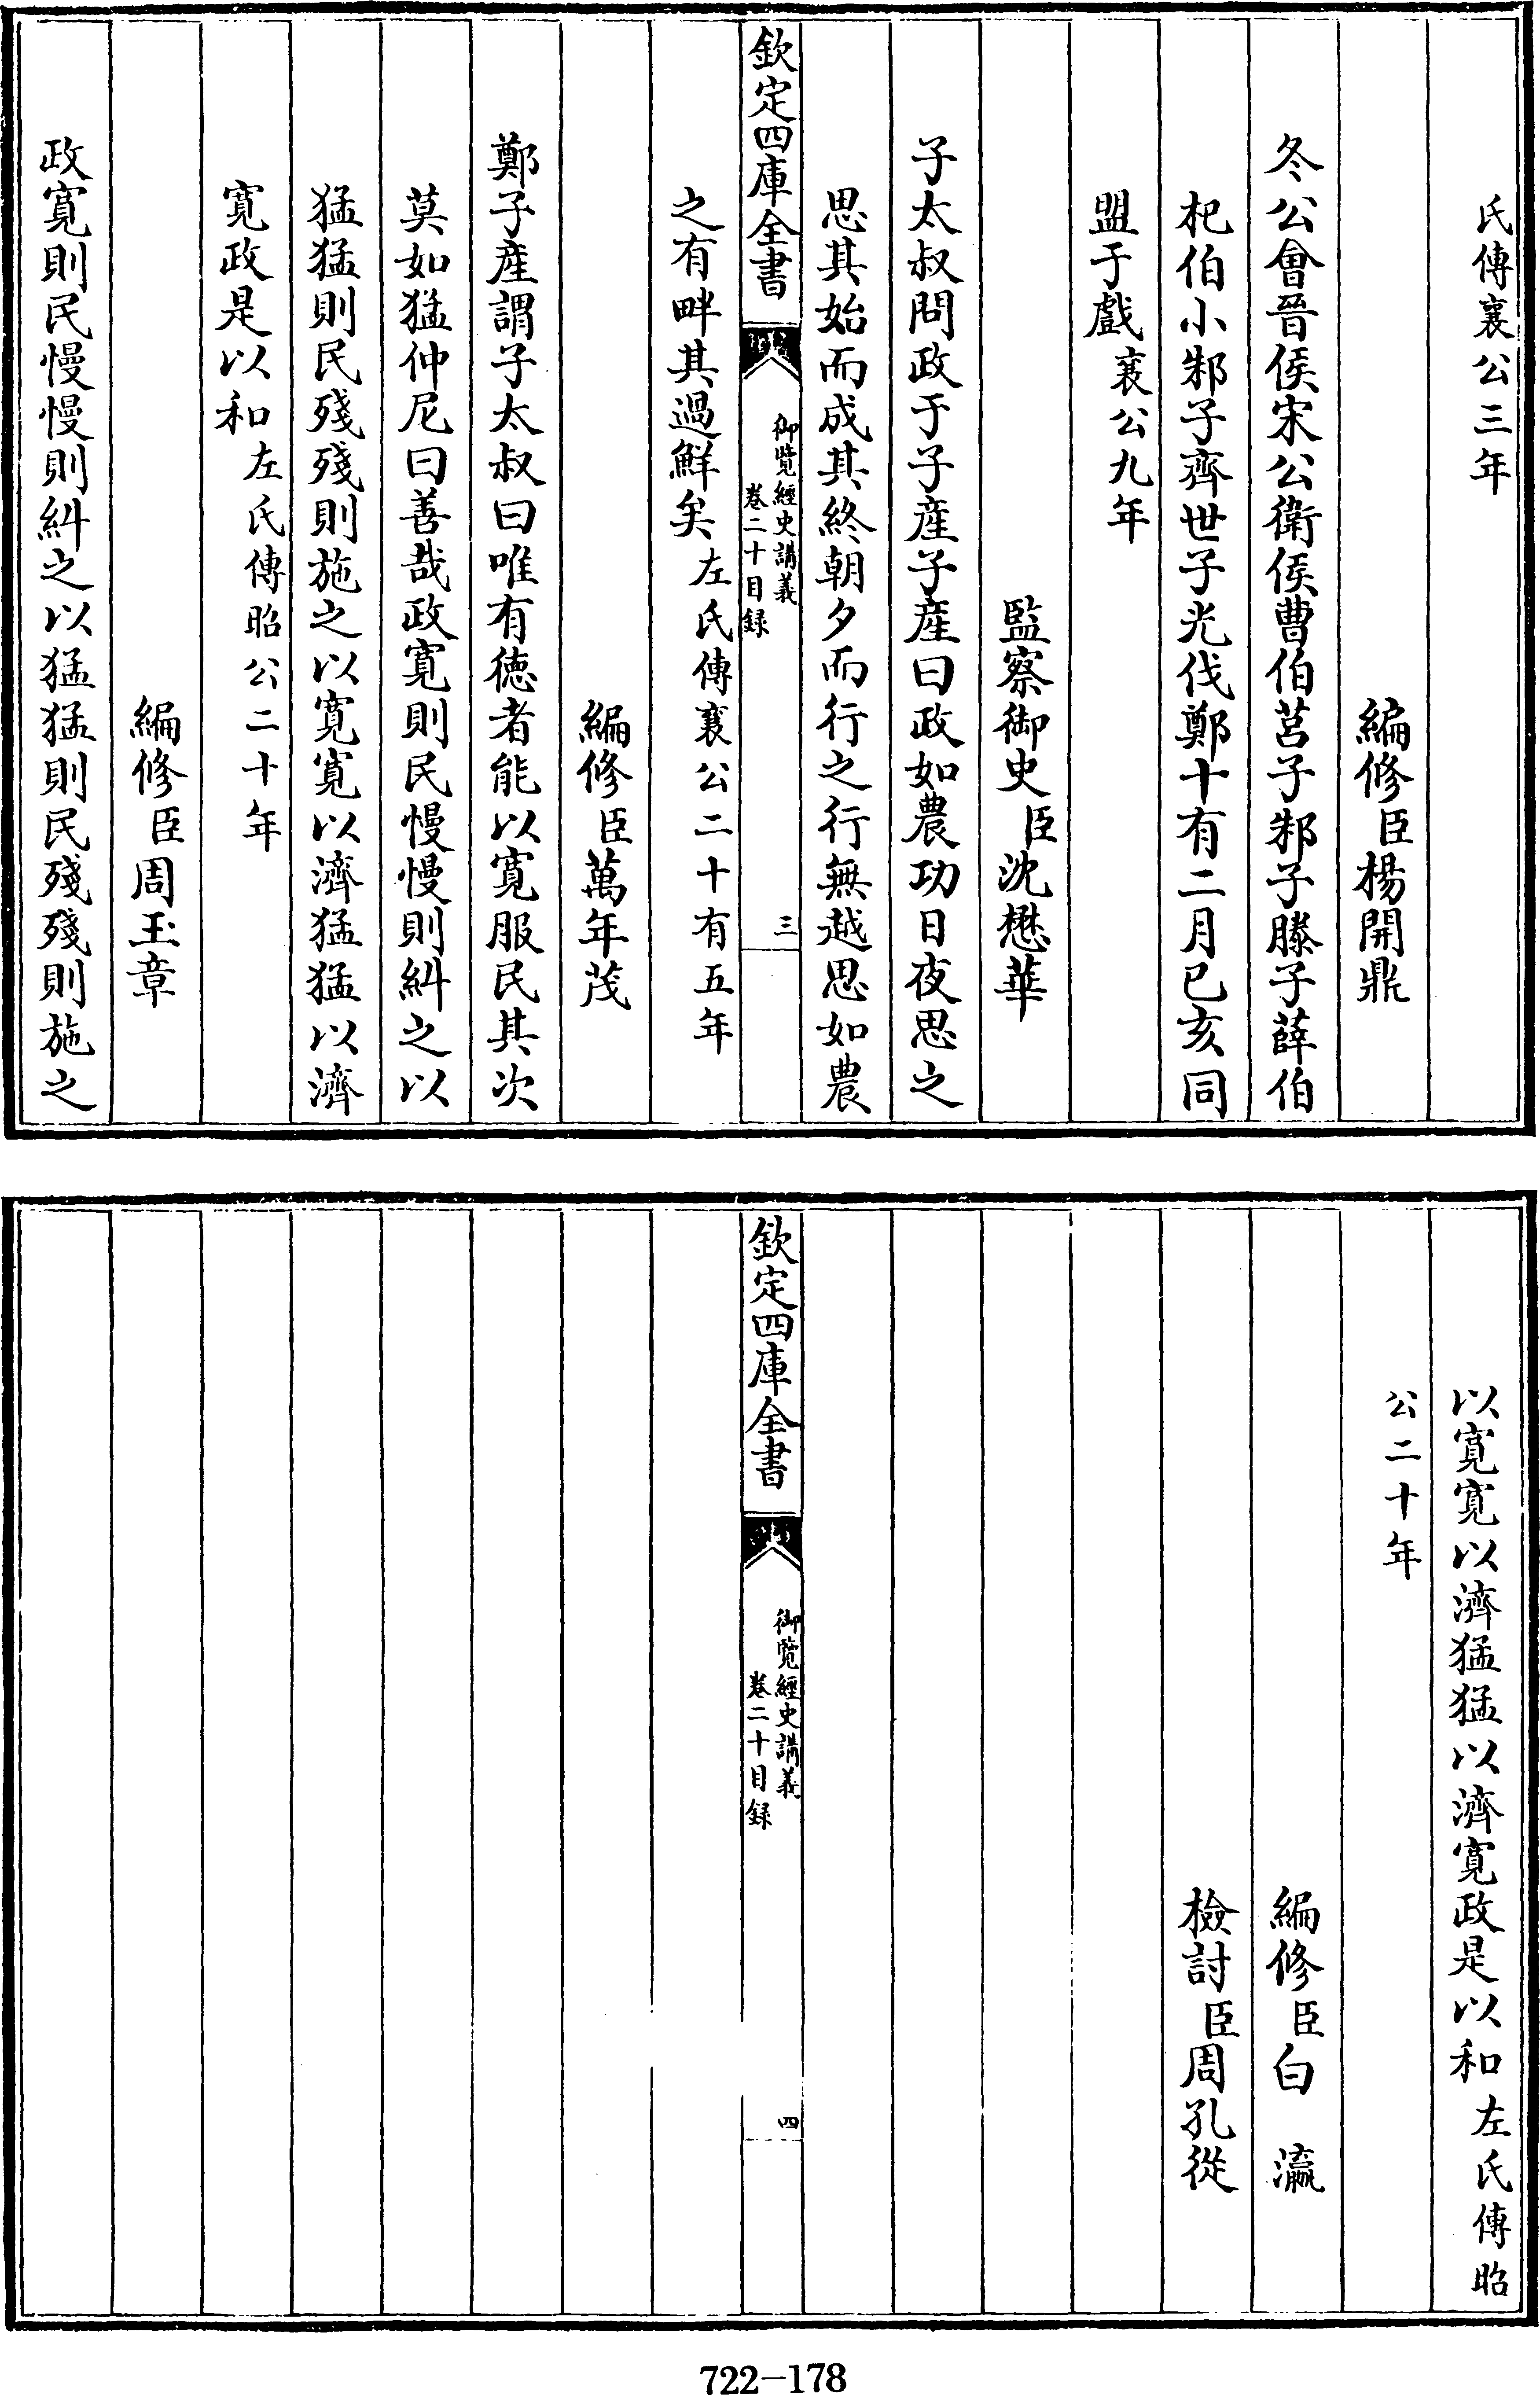 氏傳襄公三年
編修臣楊開鼎
冬公會晉侯宋公衛侯曹伯莒子邾子滕子薛伯
杞伯小邾子齊世子光伐鄭十有二月己亥同
盟于戲襄公九年
監察御史臣沈懋華
子太叔問政于子産子産曰政如農功日夜思之
思其始而成其終朝夕而行之行無越思如農
欽定四庫全書
御覽經史講義
卷二十目録
三
之有畔其過鮮矣左氏傳襄公二十有五年
編修臣萬年茂
鄭子産謂子太叔曰唯有徳者能以寛服民其次
莫如猛仲尼曰善哉政寛則民慢慢則糾之以
猛猛則民殘殘則施之以寛寛以濟猛猛以濟
寛政是以和左氏傳昭公二十年
編修臣周玉章
政寛則民慢慢則糾之以猛猛則民殘殘則施之
以寛寛以濟猛猛以濟寛政是以和左氏傳昭
公二十年
編修臣白瀛
檢討臣周孔從
欽定四庫全書
御覽經史講義
卷二十目録
四
722-178